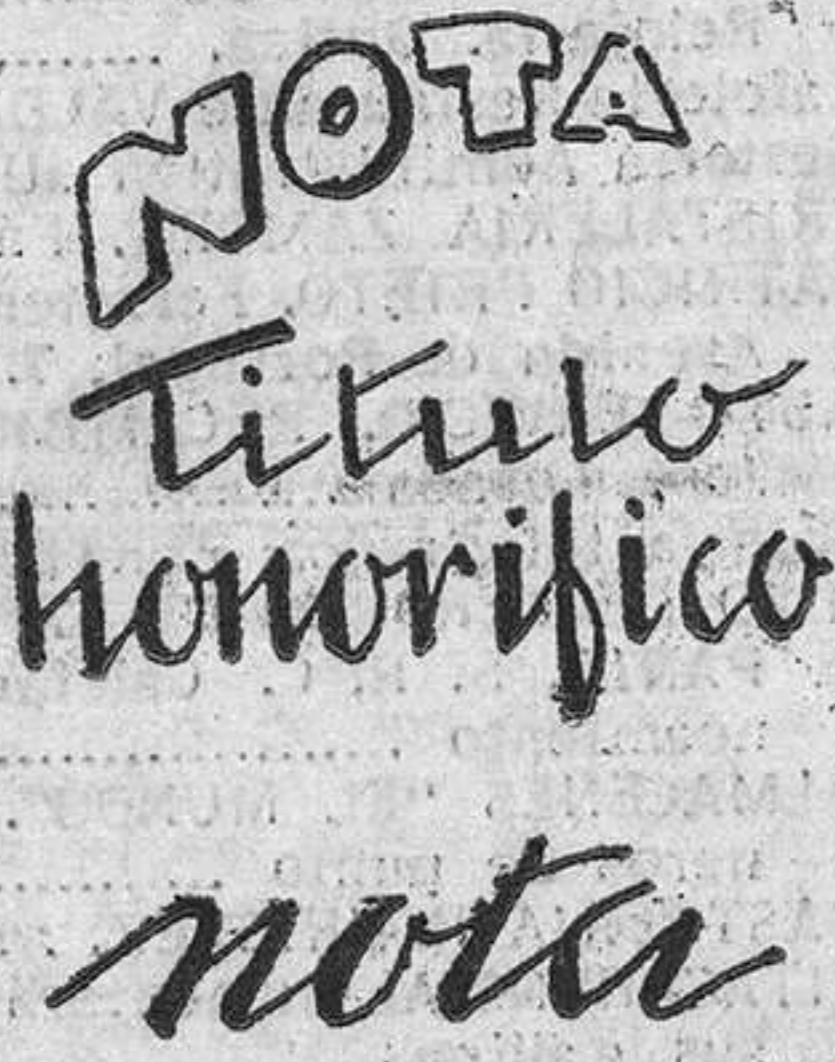 NOTA
Titulo
honorifico
nota